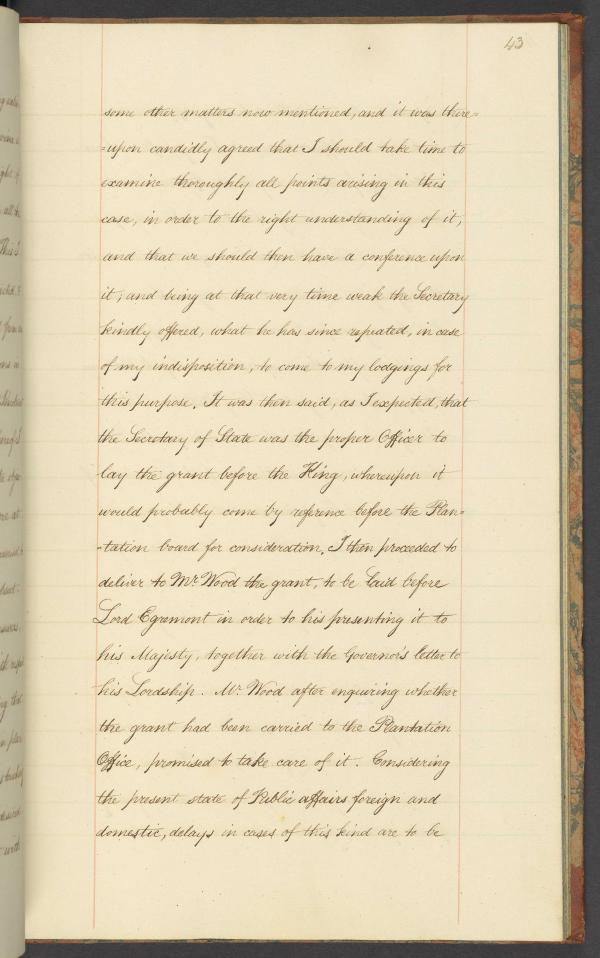 43
some other matters now mentioned, and it was there=
=upon candidly agreed that I should take time to
examine thoroughly all points arising in this
case, in order to the right understanding of it,
and that we should then have a conference upon
it; and being at that very time weak the Secretary
kindly offered, what he has since repeated, in case
of my indisposition, to come to my lodgings for
this purpose. It was then said, as I expected, that
the Secretary of State was the proper Officer to
lay the grant before the King, whereupon it
would probably come by reference before the Plan=
-tation board for consideration. I then proceeded to
deliver to Mr. Wood the grant, to be laid before
Lord Egremont in order to his presenting it to
his Majesty, together with the Governor's letter to
his Lordship. Mr. Wood after enquiring whether
the grant had been carried to the Plantation
Office, promised to take care of it. Considering
the present state of Public affairs foreign and
domestic, delays in cases of this kind are to be